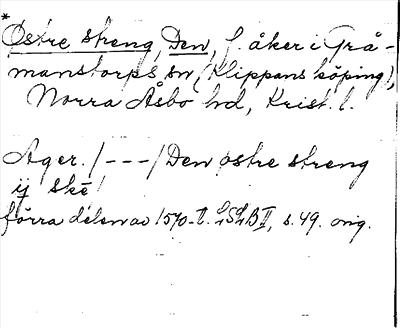 *
Østre streng, Den, f. åker i Grå-
manstorps sn (Klippans köping),
Norra Åsbo hd, Krist. l.
Ager. /---/ Den østre streng
ij skē
förra delen av 1570-t. LSLB II, s. 49. orig.